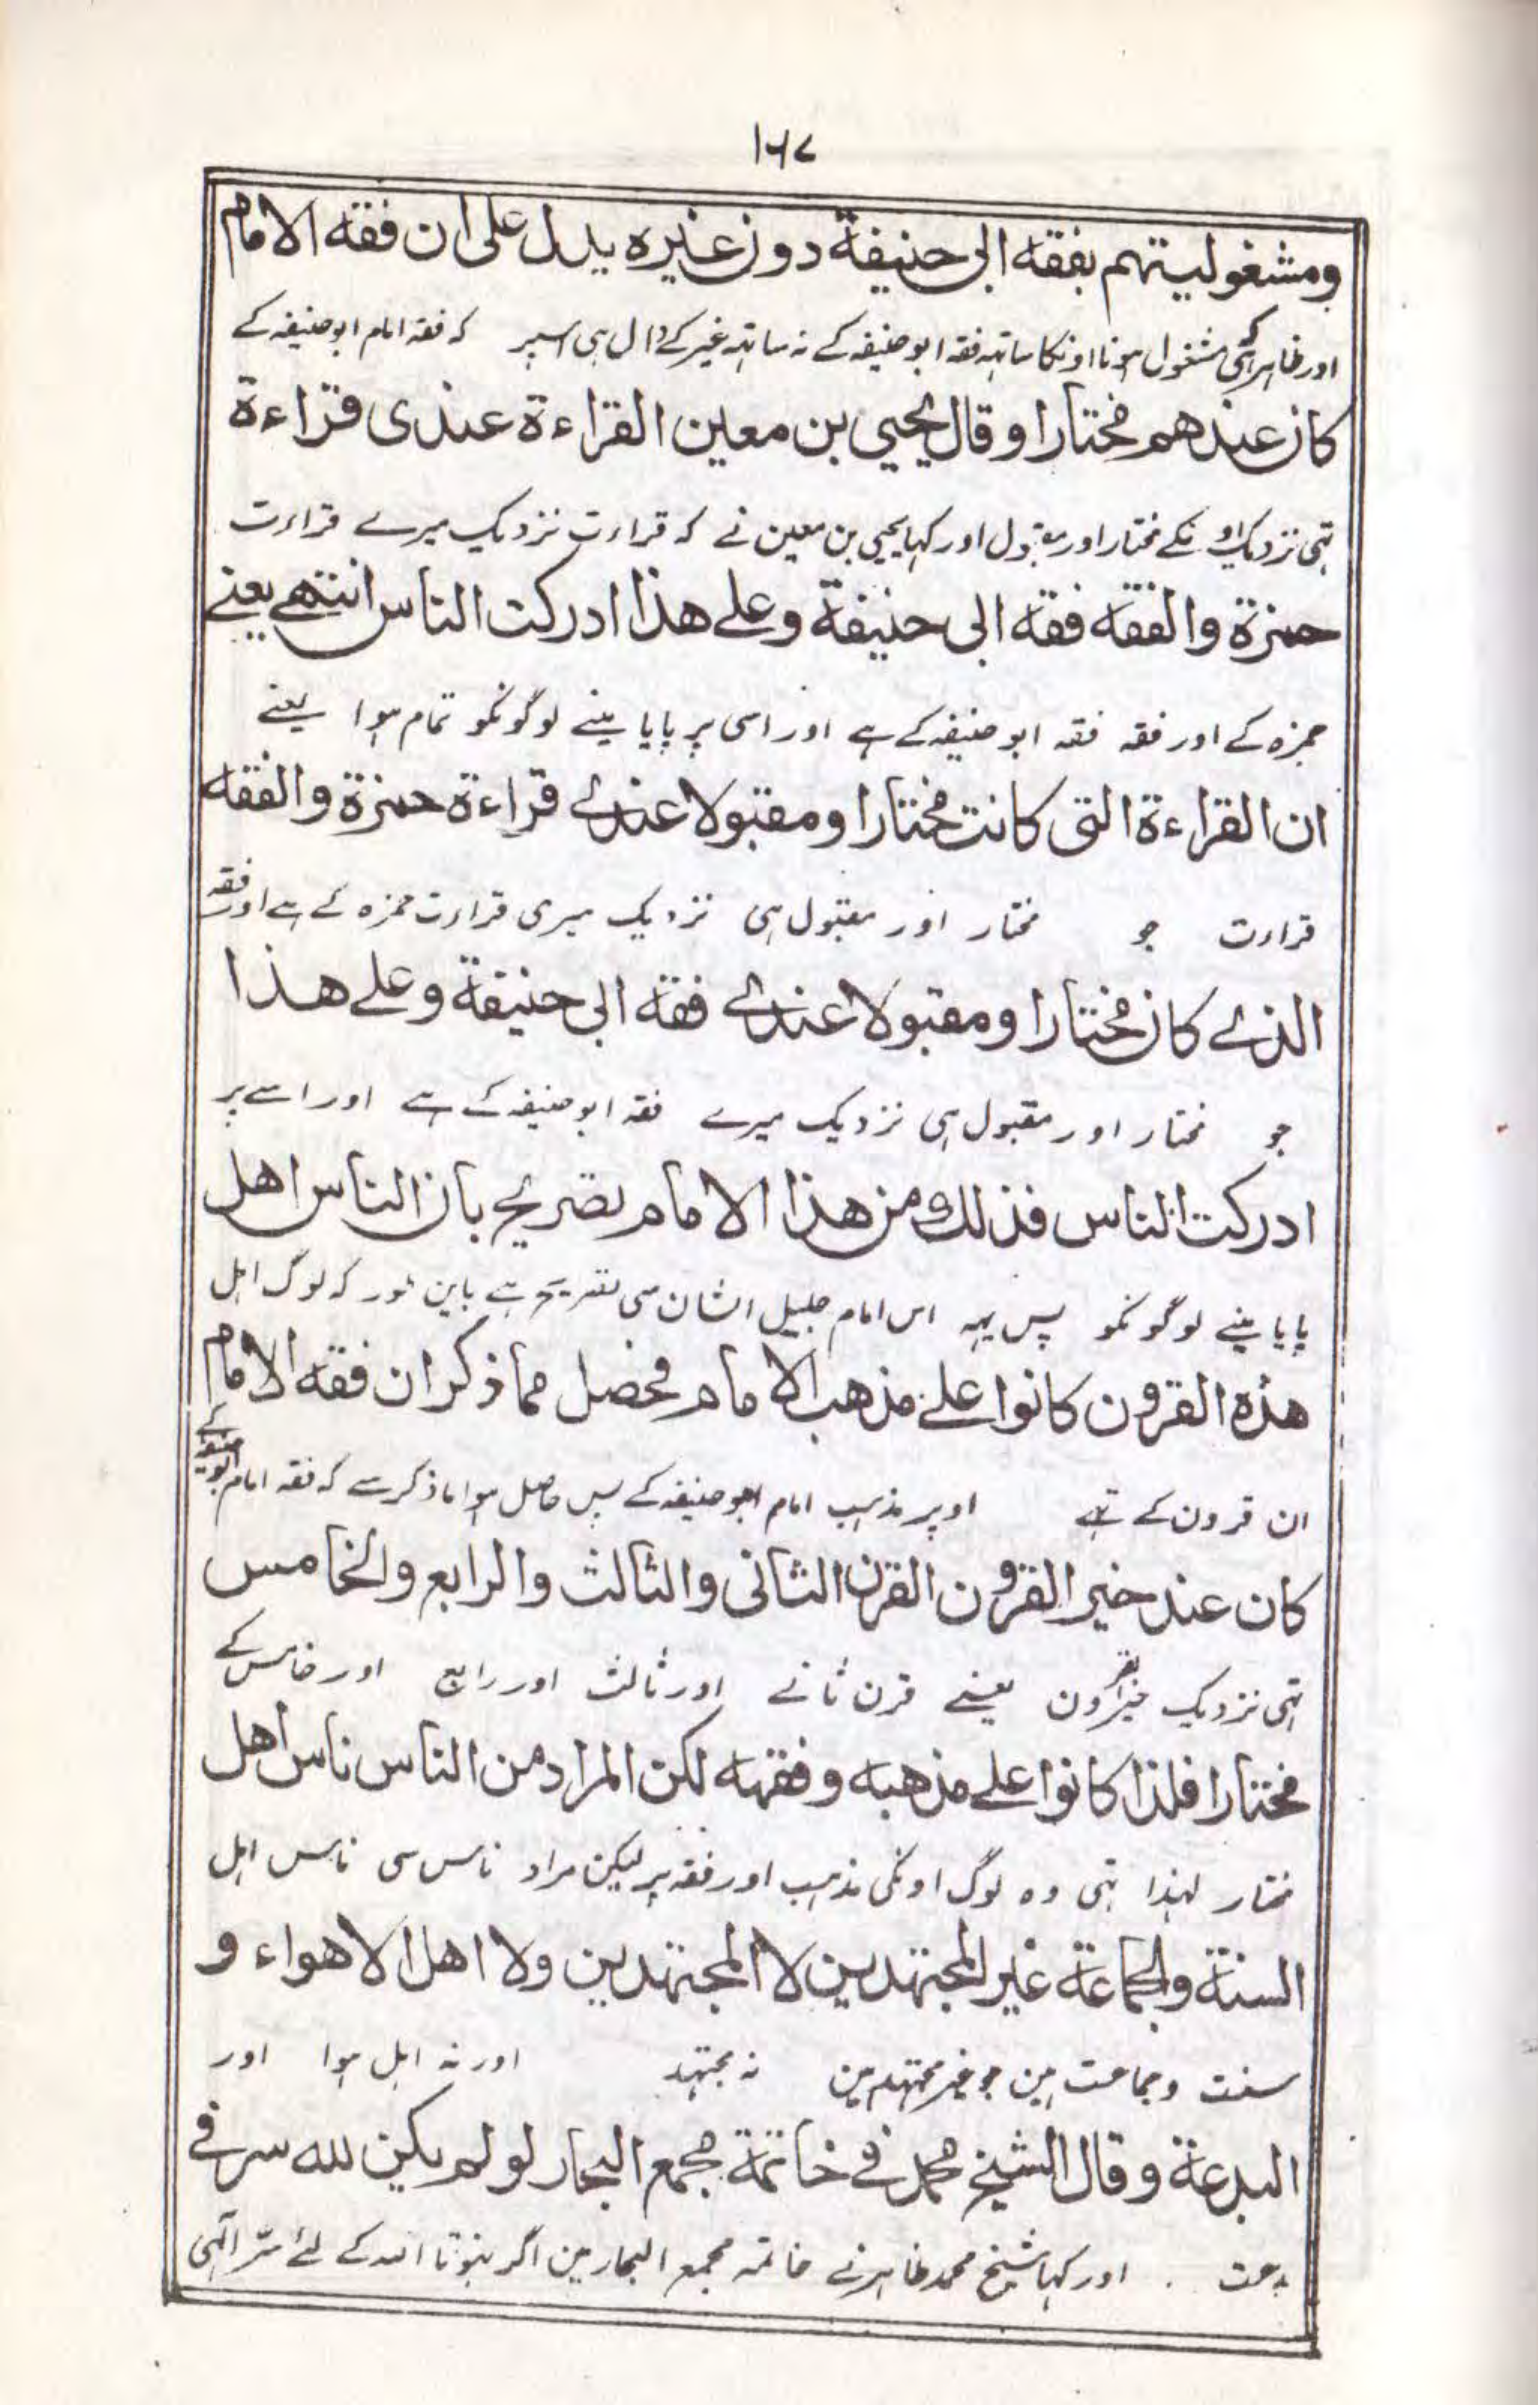 ۱۶۷
ومشغوليتهم بفقه ابي حنيفة دون غيره يدل على ان فقه الامام
اور ظاہر مشغول ہونا اونکا ساتہہ فقہ ابو حنیفہ کے نہ ساتہہ غیر کے دال ہی اسپر کہ فقہ امام ابو حنیفہ کے
كان عندهم مختارا وقال يحيي بن معين القراءة عندى قراءة
تہی نزدیک اونکے مختار اور مقبول اور کہا یحیی بن معین نے کہ قراءت نزدیک میرے قراءت
حمزة والفقه فقه ابى حنيفة وعلے هذا ادركت الناس انتهے يعنے
حمزہ کے اور فقہ فقہ ابو حنیفہ کے ہے اور اسی پر پایا مینے لوگونکو تمام ہوا یعنے
ان القراءة التى كانت مختارا ومقبولا عندے قراءة حمزة والفقه
قراءت جو مختار اور مقبول ہی نزدیک میری قراءت حمزہ کے ہے اور فقہ
الذے كان مختارا ومقبولا عندے فقه ابى حنيفة وعلے هذا
جو مختار اور مقبول ہی نزدیک میرے فقہ ابو حنیفہ کے ہے اور اسے پر
ادركت الناس فذلك من هذا الامام تصريح بان الناس اهل
پایا مینے لوگونکو پس یہہ اس امام جلیل الشان سی تصریح ہے باین طور کہ لوگ اہل
هذه القرون كانوا علے مذهب الامام فحصل مما ذكر ان فقه الامام
ان قرون کے تہے اوپر مذہب امام ابو حنیفہ کے پس حاصل ہوا ماذکر سے کہ فقہ امام ابو حنیفہ کے
كان عند خير القرون القرن الثانى والثالث والرابع والخامس
تہی نزدیک خیر القرون یعنے قرن ثانے اور ثالث اور رابع اور خامس کے
مختارا فلذا كانوا علے مذهبه وفقهه لكن المراد من الناس ناس اهل
مختار لہذا تہی وہ لوگ اونکی مذہب اور فقہ پر لیکن مراد ناس سی ناس اہل
السنة والجماعة غير المجتهدين لا المجتهدين ولا اهل الاهواء و
سنت وجماعت ہین جو غیر مجتہد ہین نہ مجتہد اور نہ اہل ہوا اور
البدعة وقال الشيخ محمد فے خاتمة مجمع البحار لو لم يكن لله سر فے
بدعت . اور کہا شیخ محمد طاہر نے خاتمہ مجمع البحار مین اگر نہوتا اللہ کے لئے سرّ الٰہی